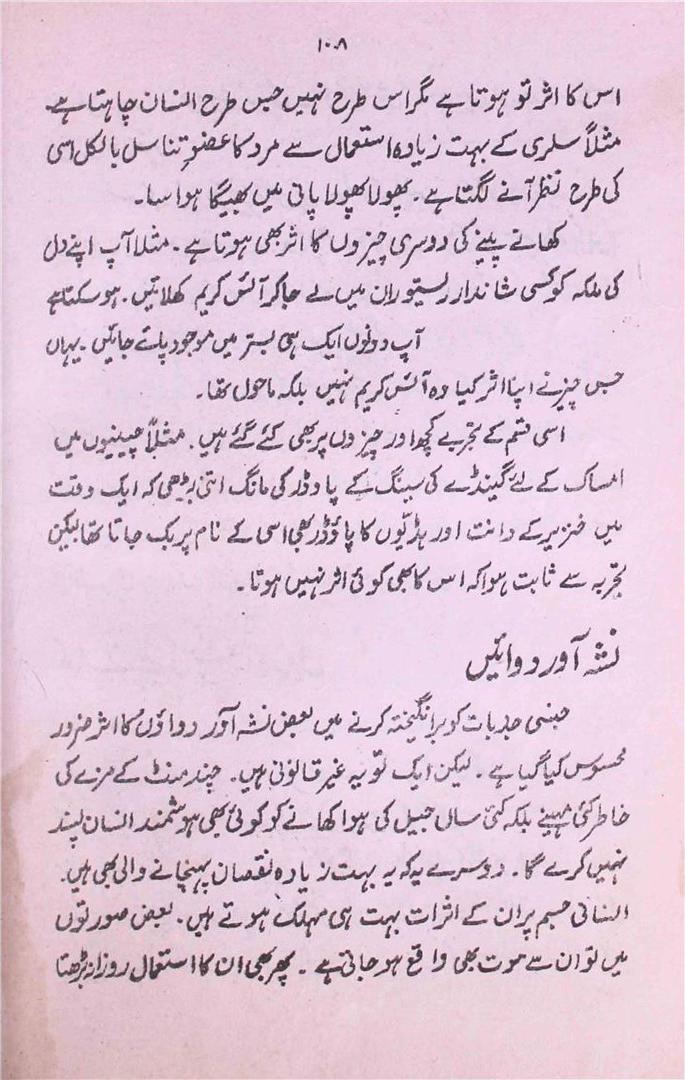 ۱۰۸
اس کا اثر تو ہوتا ہے مگر اس طرح نہیں جس طرح انسان چاہتا ہے۔
مثلاً سلری کے بہت زیادہ استعمال سے مرد کا عضوِ تناسل بالکل اسی
کی طرح نظر آنے لگتا ہے۔ پھولا پھولا پانی میں بھیگا ہوا سا۔
کھانے پینے کی دوسری چیزوں کا اثر بھی ہوتا ہے۔ مثلاً آپ اپنے دل
کی ملکہ کو کسی شاندار ریستوران میں لے جا کر آئس کریم کھلائیں۔ ہو سکتا ہے
آپ دونوں ایک ہی بستر میں موجود پائے جائیں۔ یہاں
جس چیز نے اپنا اثر کیا وہ آئس کریم نہیں بلکہ ماحول تھا۔
اسی قسم کے تجربے کچھ اور چیزوں پر بھی کئے گئے ہیں۔ مثلاً چینیوں میں
امساک کے لئے گینڈے کی سینگ کے پاوڈر کی مانگ اتنی بڑھی کہ ایک وقت
میں خنزیر کے دانت اور ہڈیوں کا پاؤڈر بھی اسی کے نام پر بک جاتا تھا لیکن
تجربہ سے ثابت ہوا کہ اس کا بھی کوئی اثر نہیں ہوتا۔
نشہ آور دوائیں
جنسی جذبات کو برانگیختہ کرنے میں بعض نشہ آور دواؤں کا اثر ضرور
محسوس کیا گیا ہے۔ لیکن ایک تو یہ غیر قانونی ہیں۔ چند منٹ کے مزے کی
خاطر کئی مہینے بلکہ کئی سال جیل کی ہوا کھانے کو کوئی بھی ہوشمند انسان پسند
نہیں کرے گا۔ دوسرے یہ کہ یہ بہت زیادہ نقصان پہنچانے والی بھی ہیں۔
انسانی جسم پر ان کے اثرات بہت ہی مہلک ہوتے ہیں۔ بعض صورتوں
میں تو ان سے موت بھی واقع ہو جاتی ہے۔ پھر بھی ان کا استعمال روزانہ بڑھتا